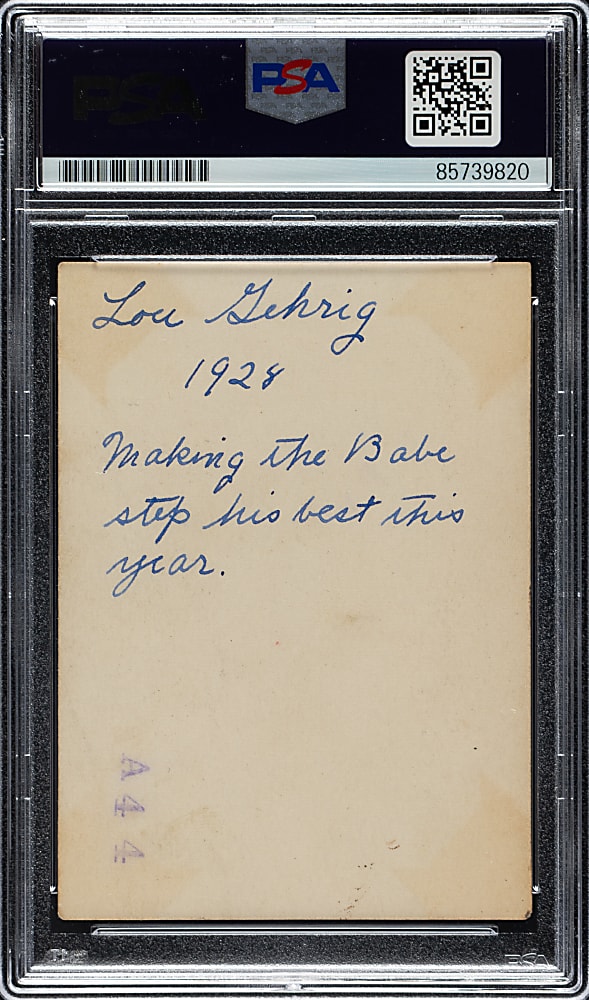 PSA
PSA
85739820
Lou Gehrig
1928
Making the Babe
step his best this
year.
A44